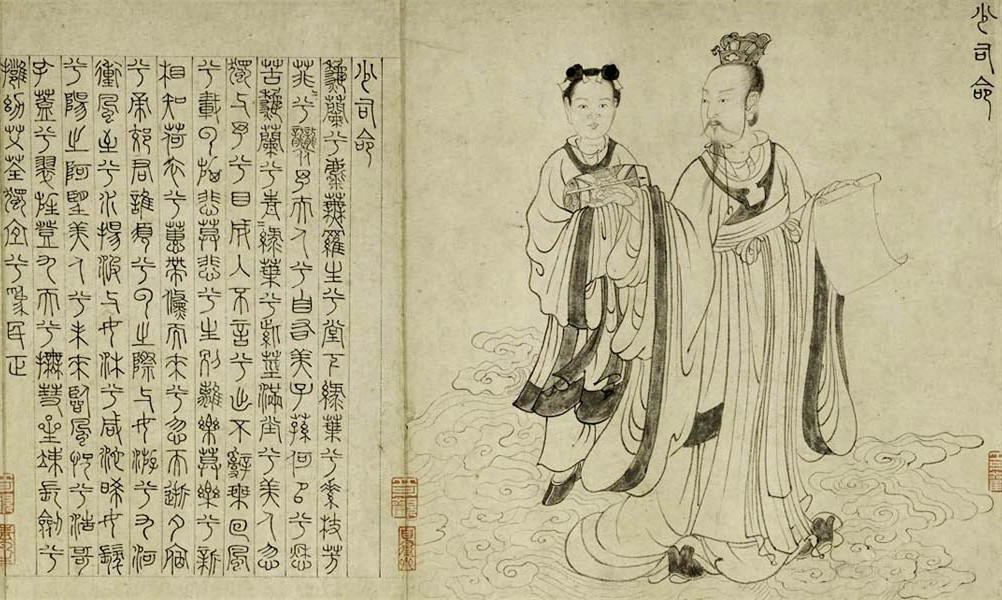 少司命
少司命
秋蘭兮麋蕪羅生兮堂下綠葉兮素枝芳
菲菲兮襲予夫人兮自有美子蓀何以兮愁
苦秋蘭兮青青綠葉兮紫莖滿堂兮美人忽
獨與予兮目成入不言兮出不辭乘回風
兮載雲旗悲莫悲兮生別離樂莫樂兮新
相知荷衣兮蕙帶儵而來兮忽而逝夕宿
兮帝郊君誰須兮雲之際與女游兮九河
衝風至兮水揚波與女沐兮咸池晞女髮
兮陽之阿望美人兮未來臨風怳兮浩歌
孔蓋兮翠旌登九天兮撫彗星竦長劍兮
擁幼艾荃獨宜兮為民正